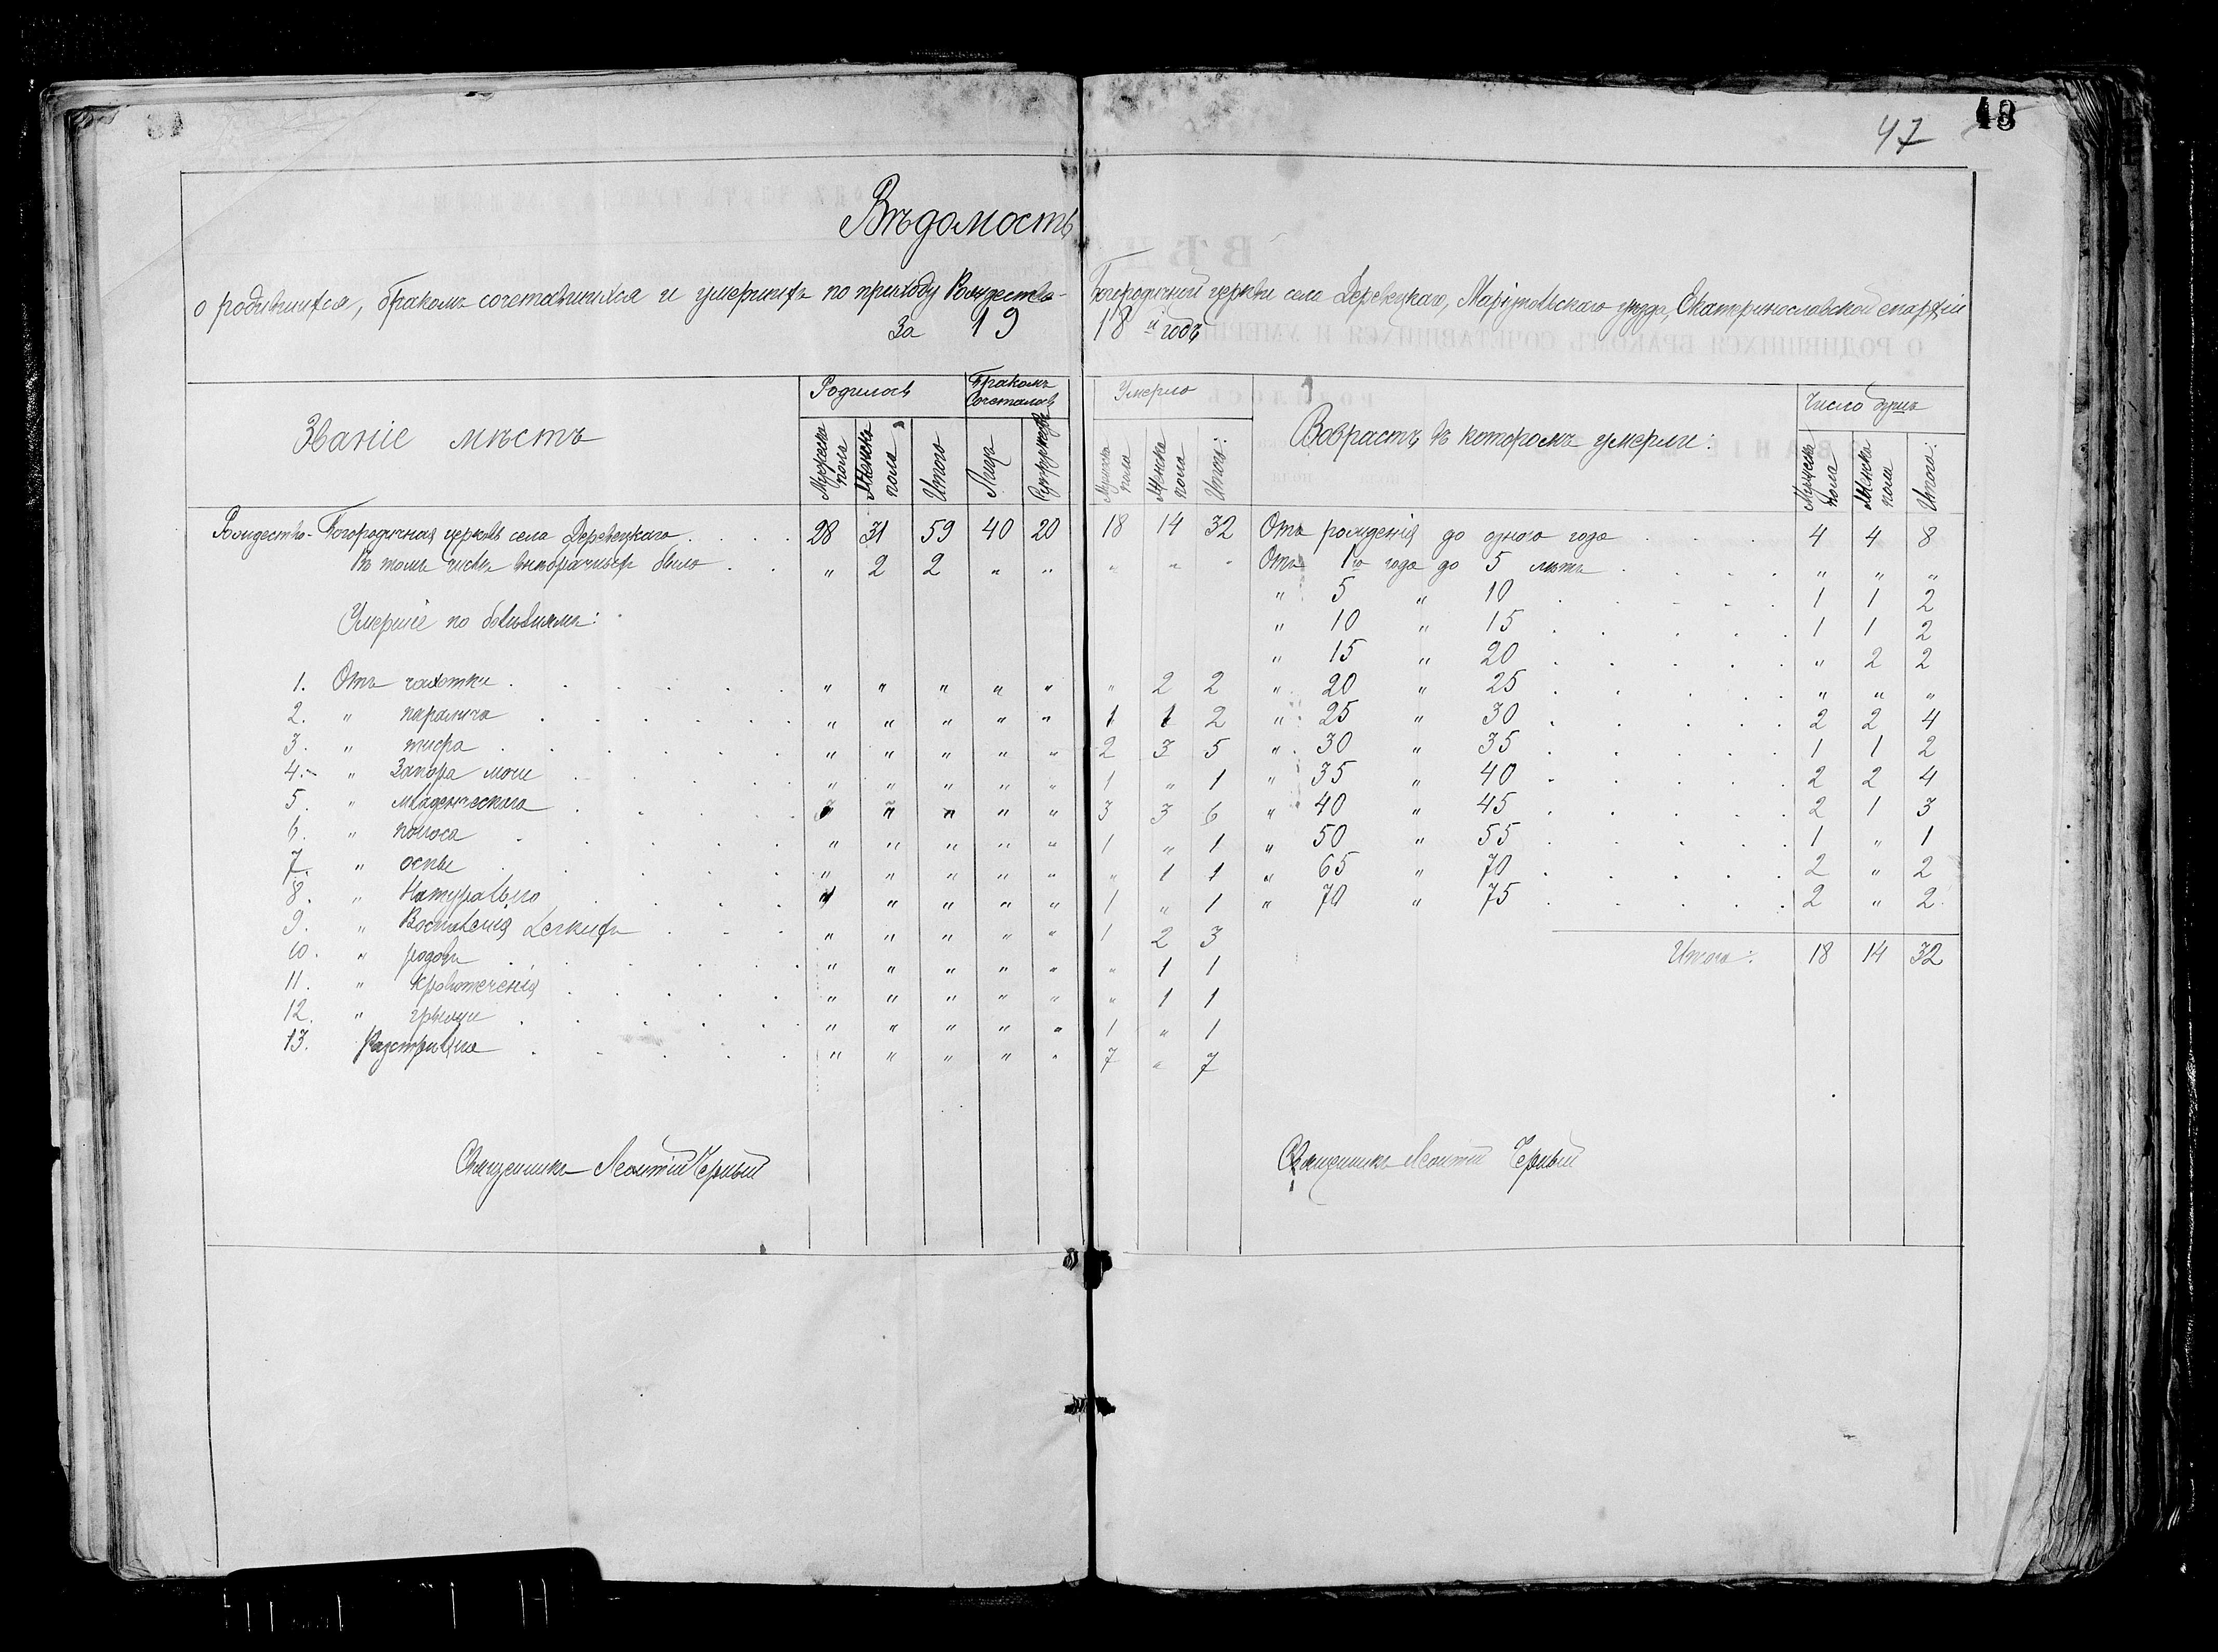 47 48
Вѣдомость
о родившихся, бракомъ сочетавшихся и умершихъ по приходу Рождество-Богородичной церкви села Деревецкаго, Маріупольскаго уѣзда, Екатеринославской епархіи
За 1918 й годъ
Званіе мѣстъ
Родилось
Бракомъ Сочеталось
Умерло
Возрастъ въ которомъ умерли:
Число душъ
Мужеска пола
Женска пола
Итого
Лицъ
Супружествъ
Мужеска пола
Женска пола
Итого:
Мужеска пола
Женска пола
Итого:
Рождество-Богородичная церковь села Деревецкаго . . . 28 31 59 40 20 18 14 32 Отъ рожденія до одного года . . . 4 4 8
Въ томъ числѣ внѣбрачныхъ было . . „ 2 2 „ „ „ „ „ Отъ 1го года до 5 лѣтъ . . . . „ „ „
„ 5 „ 10 . . . . . 1 1 2
Умершіе по болѣзнямъ: „ 10 „ 15 . . . . . 1 1 2
„ 15 „ 20 . . . . . „ 2 2
1. Отъ чахотки . . . . . . „ „ „ „ „ „ 2 2 „ 20 „ 25 . . . . . „ „ „
2. „ паралича . . . . . . „ „ „ „ „ 1 1 2 „ 25 „ 30 . . . . . 2 2 4
3. „ тифа . . . . . . „ „ „ „ „ 2 3 5 „ 30 „ 35 . . . . . 1 1 2
4. „ Запора мочи . . . . . „ „ „ „ „ 1 „ 1 „ 35 „ 40 . . . . . 2 2 4
5. „ младенческаго . . . . . „ „ „ „ 3 3 6 „ 40 „ 45 . . . . . 2 1 3
6. „ поноса . . . . . . „ „ „ „ „ 1 „ 1 „ 50 „ 55 . . . . . 1 „ 1
7. „ оспы . . . . . . „ „ „ „ „ „ 1 1 „ 65 „ 70 . . . . . 2 „ 2
8. „ Натурально . . . . . „ „ „ „ 1 „ 1 „ 70 „ 75 . . . . . 2 „ 2
9. „ Воспаленія Легкихъ . . . „ „ „ „ „ 1 2 3
10. „ родовъ . . . . . . „ „ „ „ „ „ 1 1 Итого: 18 14 32
11. „ кровотеченія . . . . . „ „ „ „ „ „ 1 1
12. „ грыжи . . . . . . „ „ „ „ „ 1 „ 1
13. Разстрѣляно . . . . . „ „ „ „ „ 7 „ 7
Священникъ Леонтій Черный
Священникъ Леонтій Черный